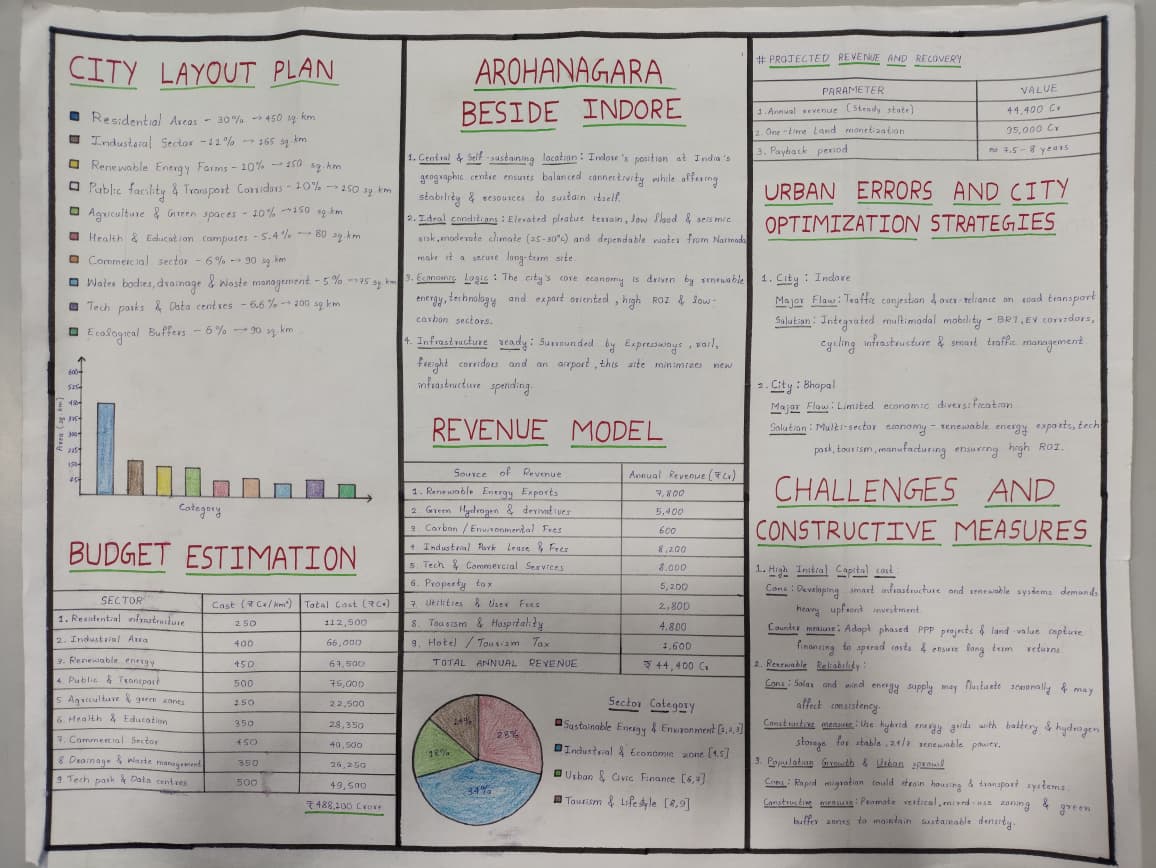 CITY LAYOUT PLAN
Residential Areas - 30% → 450 sq. km
Industrial Sector - 11% → 165 sq. km
Renewable Energy Farms - 10% → 150 sq. km
Public facility & Transport Corridors - 10% → 150 sq. km
Agriculture & Green spaces - 10% → 150 sq. km
Health & Education campuses - 5.4% → 80 sq. km
Commercial sector - 6% → 90 sq. km
Water bodies, drainage & Waste management - 5% → 75 sq. km
Tech parks & Data centres - 6.6% → 100 sq. km
Ecological Buffers - 6% → 90 sq. km
Area (sq. km)
600
525
450
375
300
225
150
75
Category
BUDGET ESTIMATION
SECTOR Cost (₹ Cr/km²) Total Cost (₹ Cr)
1. Residential infrastructure 250 112,500
2. Industrial Area 400 66,000
3. Renewable energy 450 67,500
4. Public & Transport 500 75,000
5. Agriculture & green zones 150 22,500
6. Health & Education 350 28,350
7. Commercial Sector 450 40,500
8. Drainage & Waste management 350 26,250
9. Tech park & Data centres 500 49,500
₹ 488,100 Crore
AROHANAGARA
BESIDE INDORE
1. Central & Self-sustaining location : Indore's position at India's
geographic centre ensures balanced connectivity while offering
stability & resources to sustain itself.
2. Ideal conditions : Elevated platue terrain, low flood & seismic
risk, moderate climate (25-30°C) and dependable water from Narmada
make it a secure long-term site.
3. Economic Logic : The city's core economy is driven by renewable
energy, technology and export oriented, high ROI & low-
carbon sectors.
4. Infrastructure ready : Surrounded by Expressways, rail,
freight corridors and an airport, this site minimizes new
infrastructure spending.
REVENUE MODEL
Source of Revenue Annual Revenue (₹ Cr)
1. Renewable Energy Exports 7,800
2. Green Hydrogen & derivatives 5,400
3. Carbon / Environmental Fees 600
4. Industrial Park Lease & Fees 8,200
5. Tech & Commercial Services 8,000
6. Property tax 5,200
7. Utilities & User Fees 2,800
8. Tourism & Hospitality 4,800
9. Hotel / Tourism Tax 1,600
TOTAL ANNUAL REVENUE ₹ 44,400 Cr
14%
28%
18%
34%
Sector Category
Sustainable Energy & Environment [1,2,3]
Industrial & Economic zone [4,5]
Urban & Civic Finance [6,7]
Tourism & Lifestyle [8,9]
# PROJECTED REVENUE AND RECOVERY
PARAMETER VALUE
1. Annual revenue (Steady state) 44,400 Cr
2. One-time Land monetization 95,000 Cr
3. Payback period ≈ 7.5 - 8 years
URBAN ERRORS AND CITY
OPTIMIZATION STRATEGIES
1. City : Indore
Major Flaw : Traffic congestion & over-reliance on road transport
Solution : Integrated multimodal mobility - BRT, EV corridors,
cycling infrastructure & smart traffic management.
2. City : Bhopal
Major Flaw : Limited economic diversification
Solution : Multi-sector economy - renewable energy exports, tech
park, tourism, manufacturing ensuring high ROI.
CHALLENGES AND
CONSTRUCTIVE MEASURES
1. High Initial Capital cost :
Cons : Developing smart infrastructure and renewable systems demands
heavy upfront investment.
Counter measure : Adopt phased PPP projects & land-value capture
financing to spread costs & ensure long term returns.
2. Renewable Reliability :
Cons : Solar and wind energy supply may fluctuate seasonally & may
affect consistency.
Constructive measure : Use hybrid energy grids with battery & hydrogen
storage for stable, 24/7 renewable power.
3. Population Growth & Urban sprawl
Cons : Rapid migration could strain housing & transport systems.
Constructive measure : Promote vertical, mixed-use zoning & green
buffer zones to maintain sustainable density.